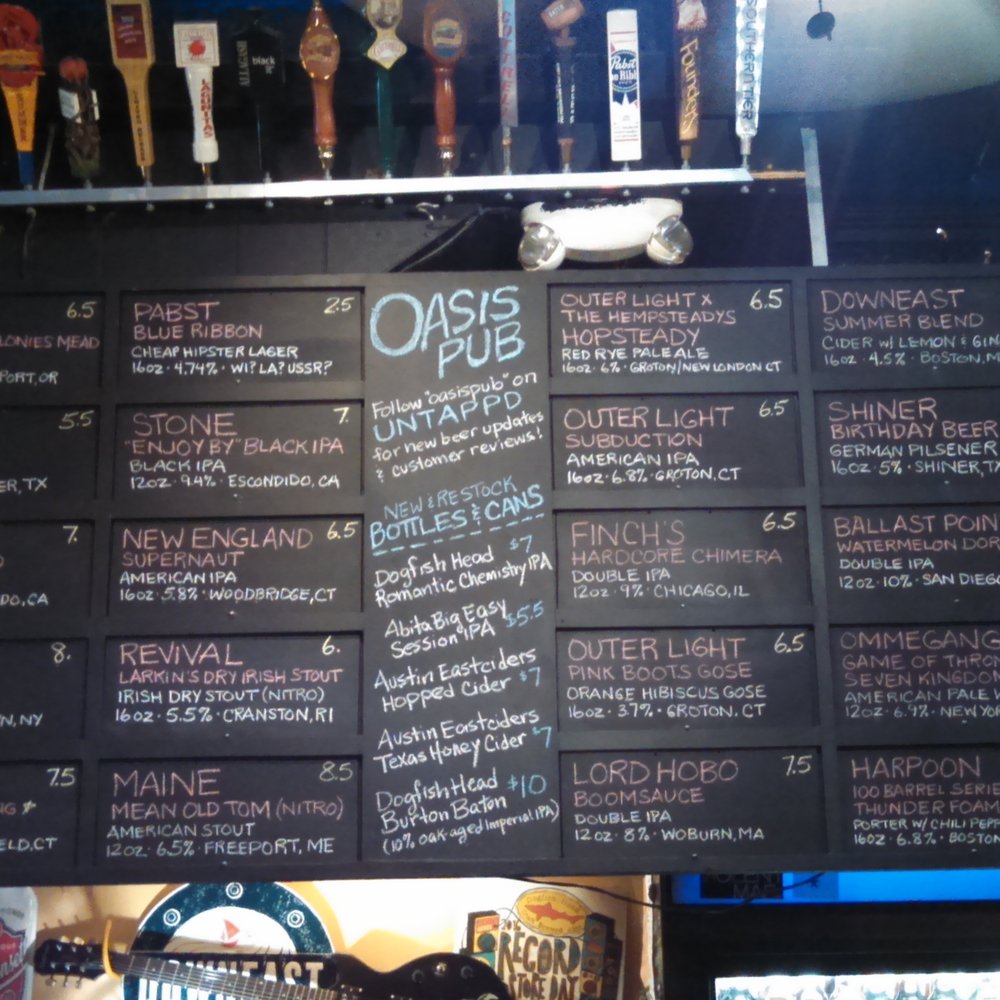 LAGUNITAS
ALLAGASH
black
Pabst
Founders
SOUTHERN TIER
6.5
LONIES MEAD
PORT, OR
5.5
ER, TX
7.
DO, CA
8.
N, NY
7.5
ELD, CT
PABST 2.5
BLUE RIBBON
CHEAP HIPSTER LAGER
16oz · 4.74% · WI? LA? USSR?
STONE 7.
"ENJOY BY" BLACK IPA
BLACK IPA
12oz · 9.4% · ESCONDIDO, CA
NEW ENGLAND 6.5
SUPERNAUT
AMERICAN IPA
16oz · 5.8% · WOODBRIDGE, CT
REVIVAL 6.
LARKIN'S DRY IRISH STOUT
IRISH DRY STOUT (NITRO)
16oz · 5.5% · CRANSTON, RI
MAINE 8.5
MEAN OLD TOM (NITRO)
AMERICAN STOUT
12oz · 6.5% · FREEPORT, ME
OASIS
PUB
Follow "oasispub" on
UNTAPPD
for new beer updates
& customer reviews!
NEW & RESTOCK
BOTTLES & CANS
Dogfish Head $7
Romantic Chemistry IPA
Abita Big Easy $5.5
Session IPA
Austin Eastciders
Hopped Cider $7
Austin Eastciders
Texas Honey Cider $7
Dogfish Head $10
Burton Baton
(10% oak-aged Imperial IPA)
OUTER LIGHT X 6.5
THE HEMPSTEADYS
HOPSTEADY
RED RYE PALE ALE
16oz · 6% · GROTON/NEW LONDON CT
OUTER LIGHT 6.5
SUBDUCTION
AMERICAN IPA
16oz · 6.8% · GROTON, CT
FINCH'S 6.5
HARDCORE CHIMERA
DOUBLE IPA
12oz · 9% · CHICAGO, IL
OUTER LIGHT 6.5
PINK BOOTS GOSE
ORANGE HIBISCUS GOSE
16oz · 3.7% · GROTON, CT
LORD HOBO 7.5
BOOMSAUCE
DOUBLE IPA
12oz · 8% · WOBURN, MA
DOWNEAST
SUMMER BLEND
CIDER W/ LEMON & GIN
16oz · 4.5% · BOSTON, M
SHINER
BIRTHDAY BEER
GERMAN PILSENER
16oz · 5% · SHINER, TX
BALLAST POIN
WATERMELON DOR
DOUBLE IPA
12oz · 10% · SAN DIEG
OMMEGANG
GAME OF THRON
SEVEN KINGDO
AMERICAN PALE W
12oz · 6.9% · NEW YOR
HARPOON
100 BARREL SERIE
THUNDER FOAM
PORTER W/ CHILI PEPP
16oz · 6.8% · BOSTON
DOWNEAST
RECORD
STORE DAY